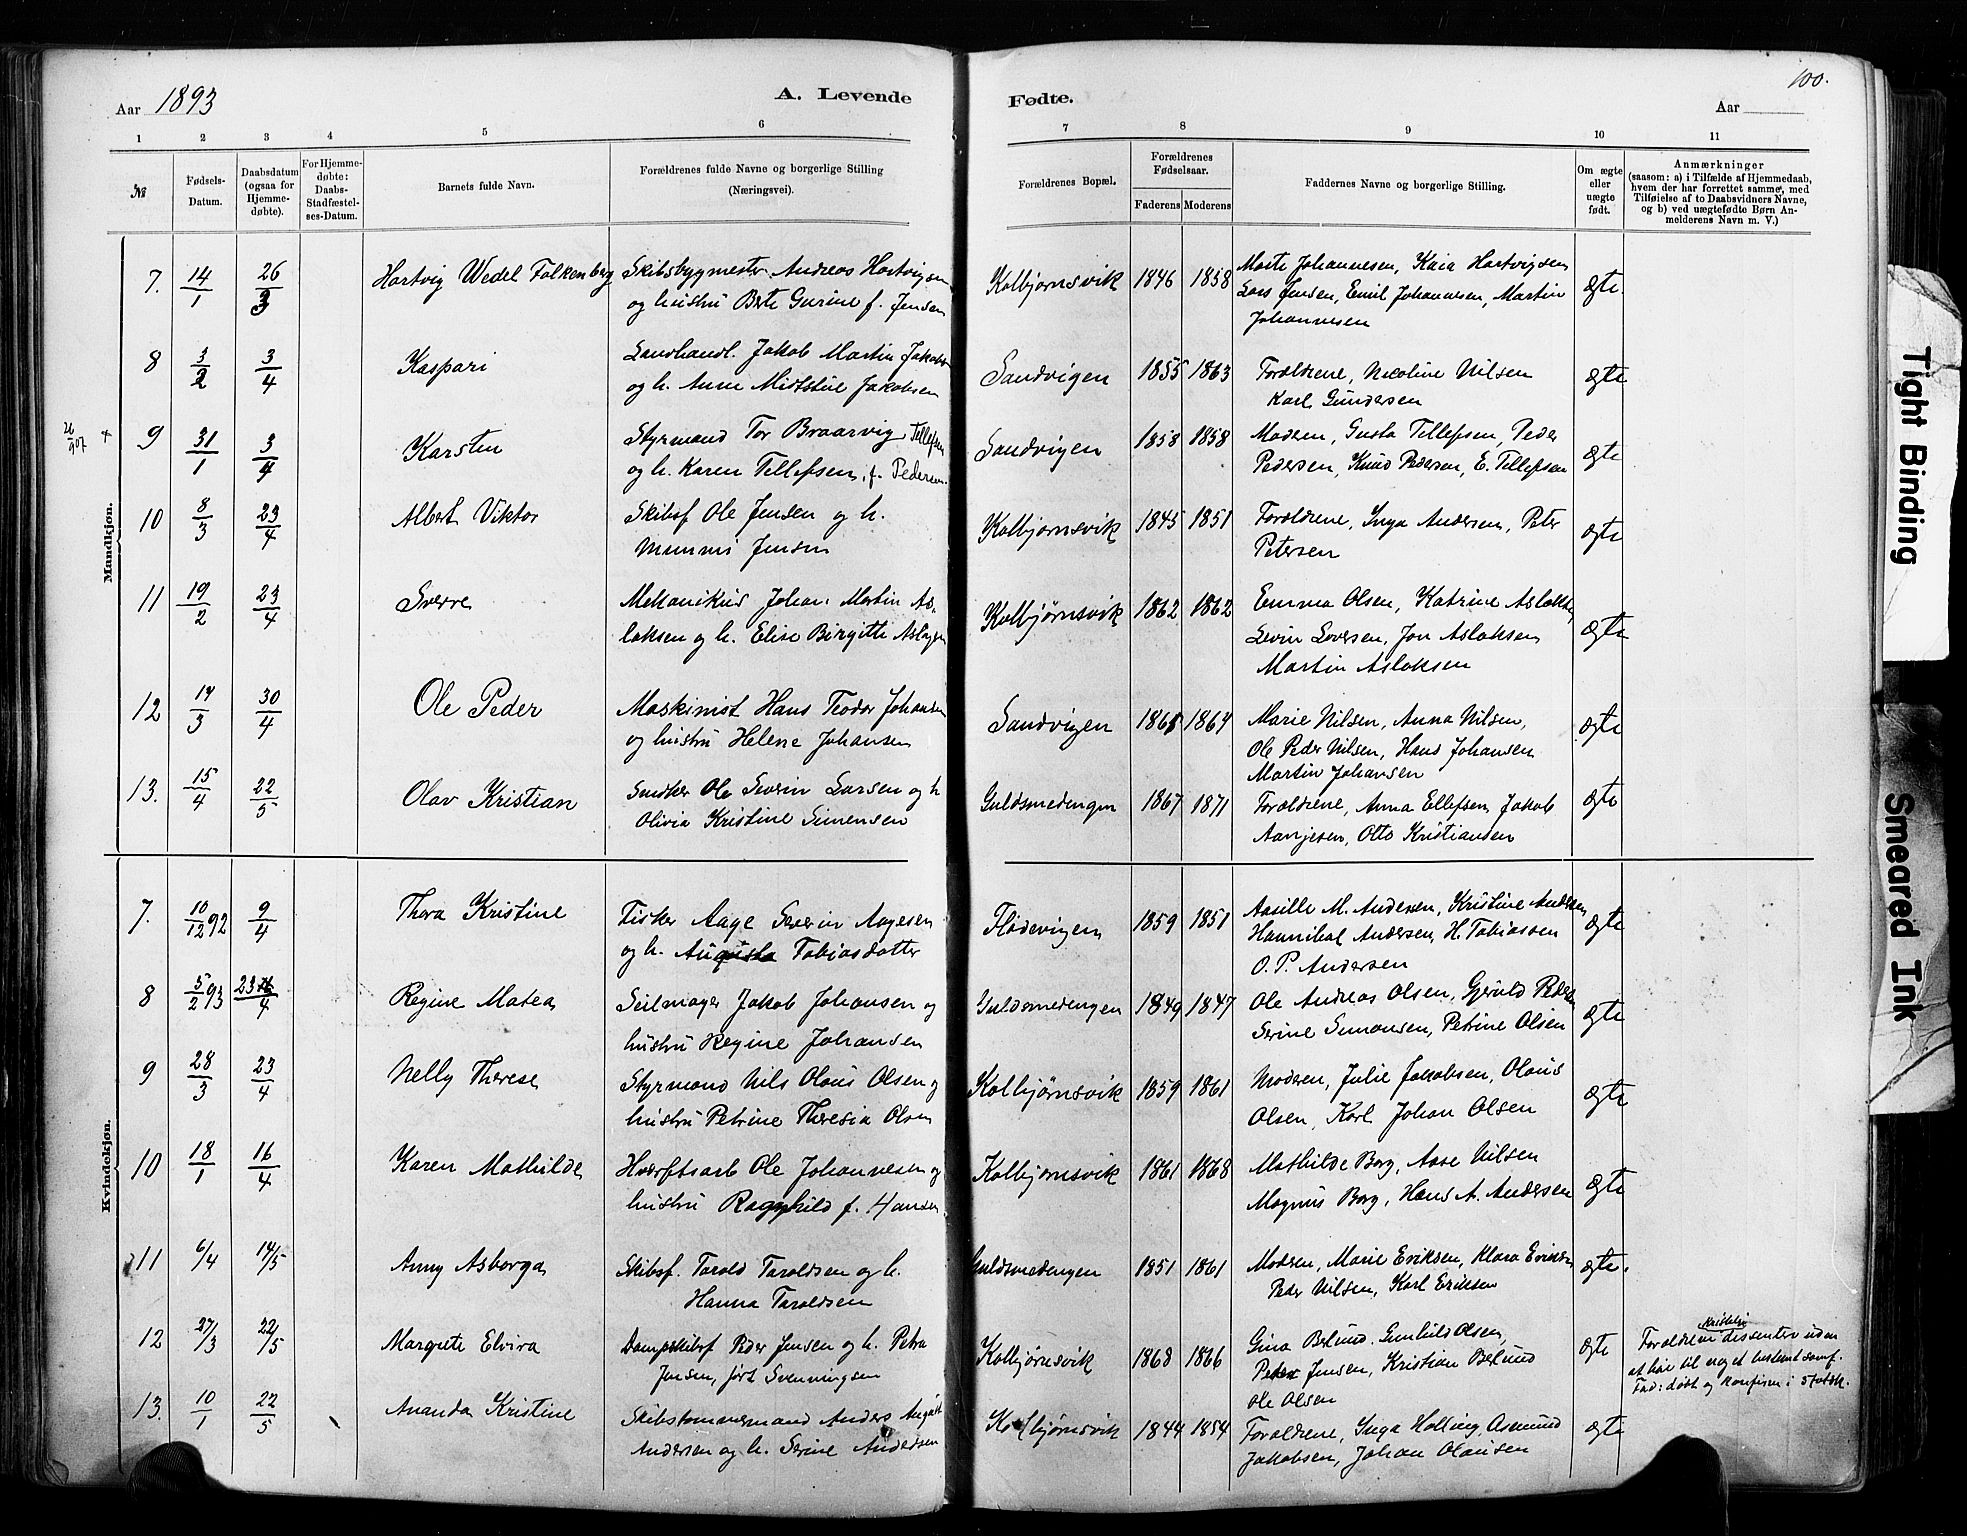 Aar 1893
A. Levende
Fødte.
100.
Aar
1 2 3 4 5 6 7 8 9 10 11
№
Fødsels-
Datum.
Daabsdatum
(ogsaa for
Hjemme-
døbte).
For Hjemme-
døbte:
Daabs-
Stadfæstel-
ses-Datum.
Barnets fulde Navn.
Forældrenes fulde Navne og borgerlige Stilling
(Næringsvei).
Forældrenes Bopæl.
Forældrenes
Fødselsaar.
Faderens Moderens
Faddernes Navne og borgerlige Stilling.
Om ægte
eller
uægte
født.
Anmærkninger
(saasom: a) i Tilfælde af Hjemmedaab,
hvem der har forrettet samme, med
Tilføielse af to Daabsvidners Navne,
og b) ved uægtefødte Børn An-
melderens Navn m. V.)
Mandkjøn.
7. 14/1 26/3 Hartvig Wedel Falkenberg Skibsbygmester Andreas Hartvigsen Kolbjørnsvik 1846 1858 Marte Johannesen, Kaia Hartvigsen ægte.
og hustru Berte Gurine f. Jensen Lars Jensen, Emil Johannesen, Martin
Johannesen
8 3/2 3/4 Kaspari Landhandl. Jakob Martin Jakobs Sandvigen 1855 1863 Forældrene, Nicoline Nilsen ægte
og h. Anne Jakobsen Karl Gundersen
9 31/1 3/4 Karsten Styrmand Tor Braarvig Tellefsen Sandvigen 1858 1858 Moderen, Gusta Tellefsen, Peder ægte
og h. Karen Tellefsen, f. Pedersen. Pedersen, Knud Pedersen, E. Tellefsen
10 8/3 23/4 Albert Viktor Skibsf Ole Jensen og h. Kolbjørnsvik 1845 1851 Forældrene, Inga Andersen, Peter ægte
Jensen Petersen
11 19/2 23/4 Sverre Mekanikus Johan Martin As- Kolbjørnsvik 1862 1862 Emma Olsen, Katrine Aslakse ægte
laksen og h. Elise Birgitte Levin Loversen, Jon Aslaksen
Martin Aslaksen
12 17/3 30/4 Ole Peder Maskinist Hans Teodor Johansen Sandvigen 1861 1864 Marie Nilsen, Anna Nilsen, ægte
og hustru Helene Johansen Ole Peder Nilsen, Hans Johansen
Martin Johansen
13. 15/4 22/5 Olav Kristian Snedker Ole Severin Larsen og h Guldsmedengen 1867 1871 Forældrene, Anna Ellefsen, Jakob ægte
Olivia Kristine Simensen Aanjesen, Otto Kristiansen
Kvindekjøn.
7. 10/12 92 9/4 Thora Kristine Fisker Aage Severin Aagesen Flødevigen 1859 1851 Aasille M. Andersen, Kristine Andersen ægte
og h. Augusta Tobiasdatter Hannibal Andersen, H. Tobiassen
O. P. Andersen
8 5/2 93 23/4 Regine Matea Seilmager Jakob Johansen og Guldsmedengen 1849 1847 Ole Andreas Olsen, Gjeruld Peders ægte
hustru Regine Johansen Serine Simonsen, Petrine Olsen
9 28/3 23/4 Nelly Therese Styrmand Nils Olaus Olsen og Kolbjørnsvik 1859 1861 Moderen, Julie Jakobsen, Olaus ægte
hustru Petrine Theresia Olsen Olsen, Karl Johan Olsen
10 18/1 16/4 Karen Mathilde Hverftsarb Ole Johannesen og Kolbjørnsvik 1861 1868 Mathilde Borg, Aase Nilsen ægte
hustru Ragnhild f. Hansen Magnus Borg, Hans A. Andersen
11 6/4 14/5 Anny Asborga Skibsf. Tarald Taraldsen og h. Guldsmedengen 1851 1861 Moderen, Marie Eriksen, Klara Eriksen ægte.
Hanna Taraldsen Peder Nilsen, Karl Eriksen
12 27/3 22/5 Margrete Elvira Dampskibsf Peder Jensen og h. Petra Kolbjørnsvik 1868 1866 Gina Belund. Gunhild Olsen, ægte
Jensen, født Svenningsen Peter Jensen, Kristian Belund
Ole Olsen
Forældrene dissenter uden
at høre til noget bestemt samf.
Fad: døbt og konfirm i Statsk.
13. 10/1 22/5 Ananda Kristine Skibstømmermand Anders August Kolbjørnsvik 1844 1854 Forældrene, Inga Asmund ægte
Andersen og h. Serine Andersen Jakobsen, Johan Olausen
Tight Binding
Smeared Ink